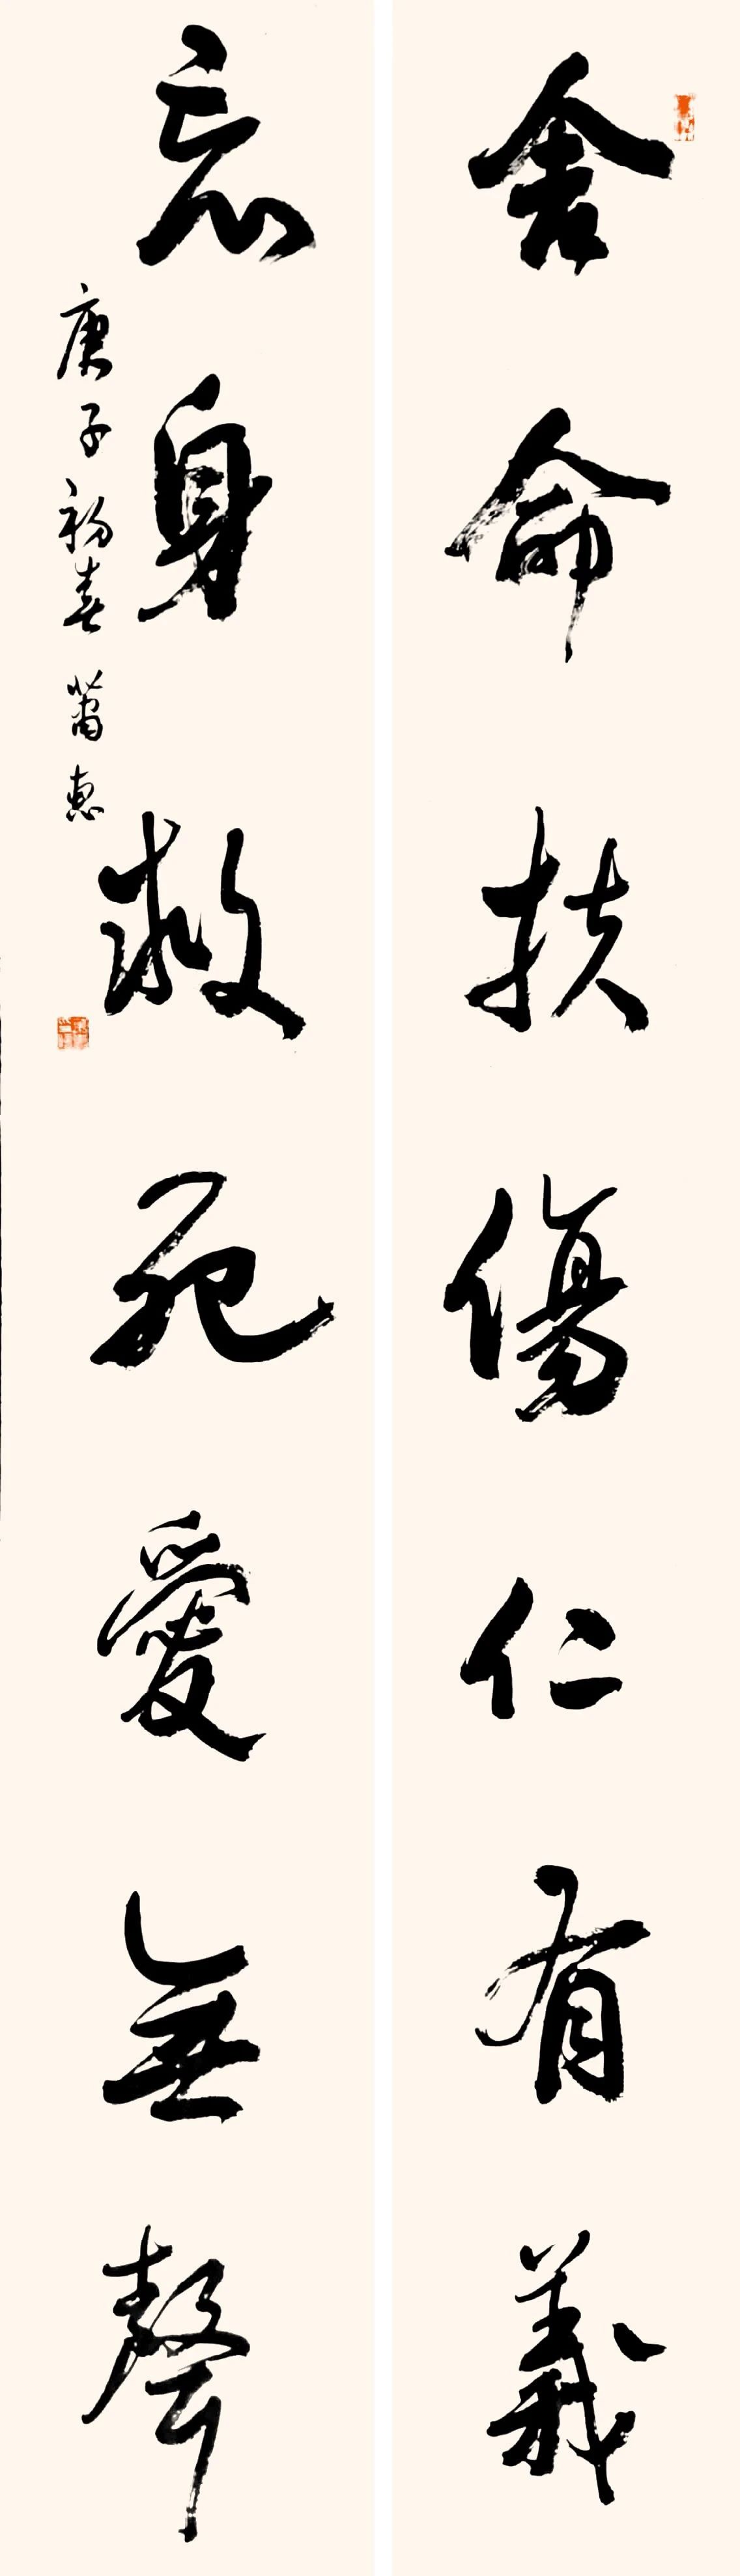 舍命扶傷仁有義
忘身救死愛無聲
庚子初春 萧惠